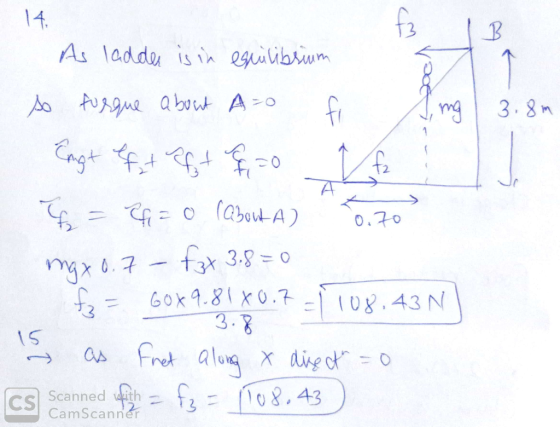 14.
As ladder is in equilibrium
so torque about A = 0
τmg + τf₂ + τf₃ + τf₁ = 0
τf₂ = τf₁ = 0 (about A)
mg x 0.7 - f₃ x 3.8 = 0
f₃ = 60 x 9.81 x 0.7 / 3.8 = 108.43 N
15
→ as Fnet along x direct = 0
f₂ = f₃ = 108.43
f₃
B
mg
3.8 m
f₁
f₂
A
0.70
CS Scanned with
CamScanner